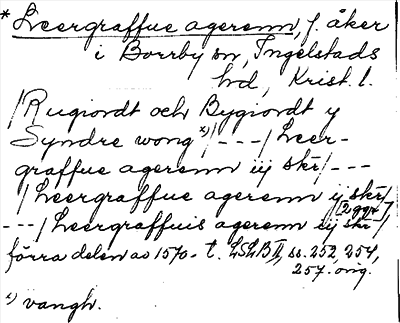 * Leergraffue agerenn, f. åker
i Borrby sn, Ingelstads
hd, Krist. l.
/Rugiordt och Bygiordt y
Syndre wong x)/---/Leer-
graffue agerenn iij skr/---
/Leergraffue agerenn ij skr/
[2 ggr]
---/Leergraffuis agerenn iij skr/
förra delen av 1570-t. LSLB II, ss. 252, 254,
257. orig.
x) vangh.